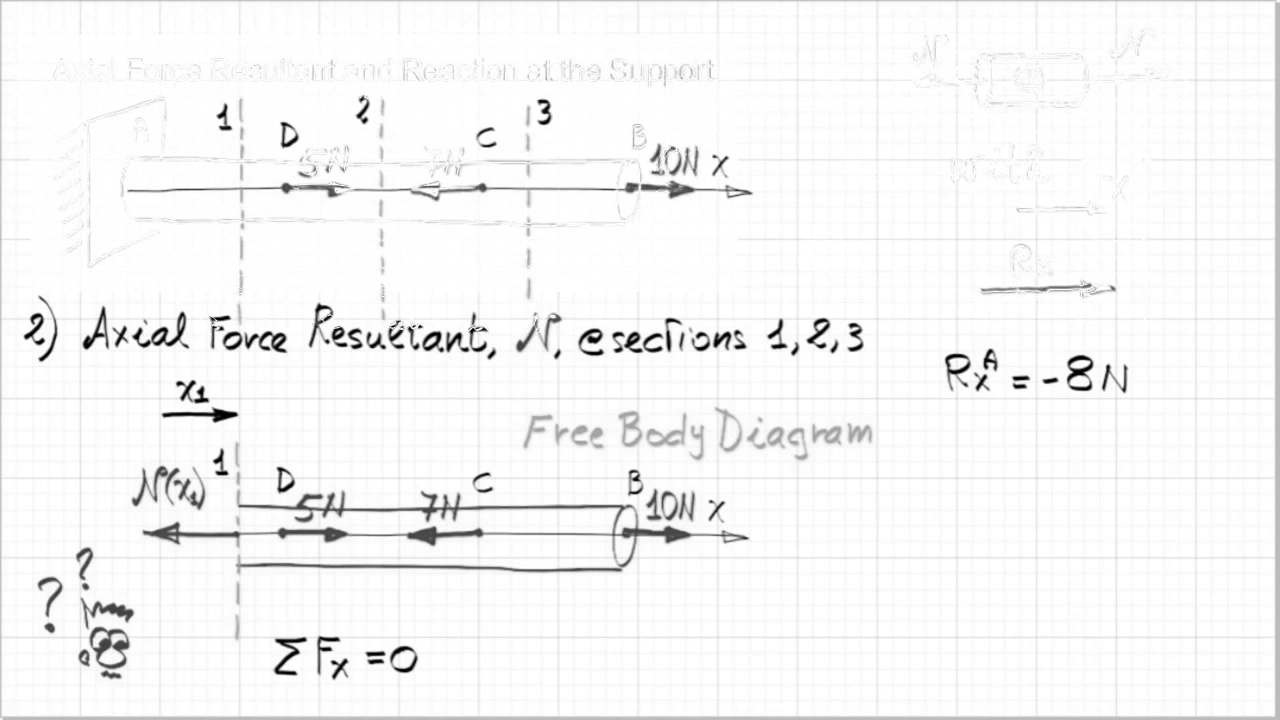 Axial Force Resultant and Reaction at the Support
N N
1 2 3
A D C B
5N 7N 10N x
with
x
Rx
2) Axial Force Resultant, N, @sections 1,2,3
RxA = -8N
x1
Free Body Diagram
1
N(x1) D C B
5N 7N 10N x
? ?
ΣFx =0